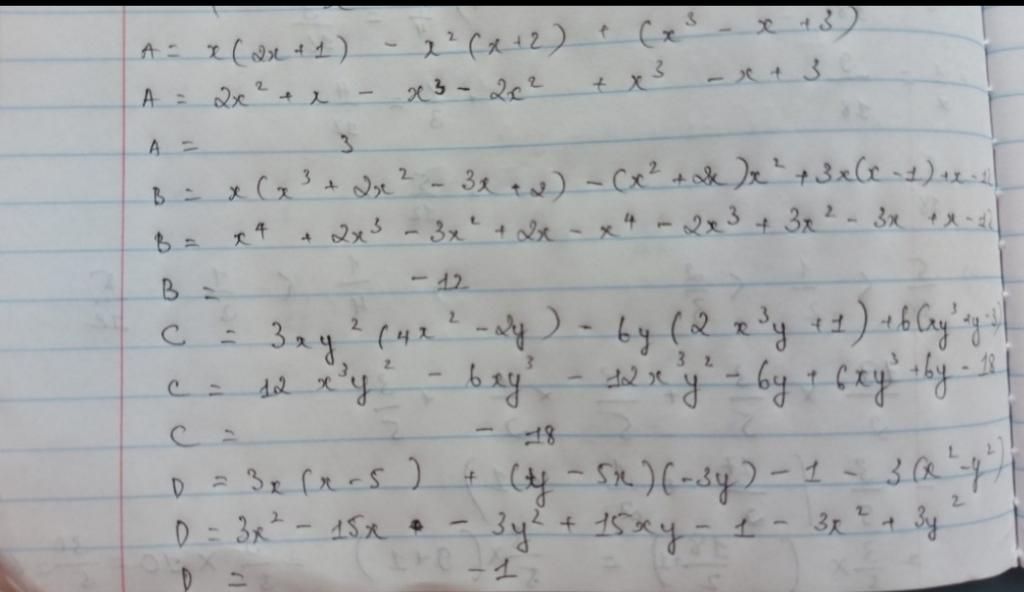 A = x(2x+1) - x²(x+2) + (x³ - x +3)
A = 2x² + x - x³ - 2x² + x³ - x + 3
A = 3
B = x(x³ + 2x² - 3x + 2) - (x² + 2x)x² + 3x(x - 1) + x - 12
B = x⁴ + 2x³ - 3x² + 2x - x⁴ - 2x³ + 3x² - 3x + x - 12
B = -12
C = 3xy²(4x² - 2y) - 6y(2x³y + 1) + 6(xy³ + y - 3)
C = 12x³y² - 6xy³ - 12x³y² - 6y + 6xy³ + 6y - 18
C = - 18
D = 3x(x - 5) + (y - 5x)(-3y) - 1 - 3(x² - y²)
D = 3x² - 15x - 3y² + 15xy - 1 - 3x² + 3y²
D = - 1